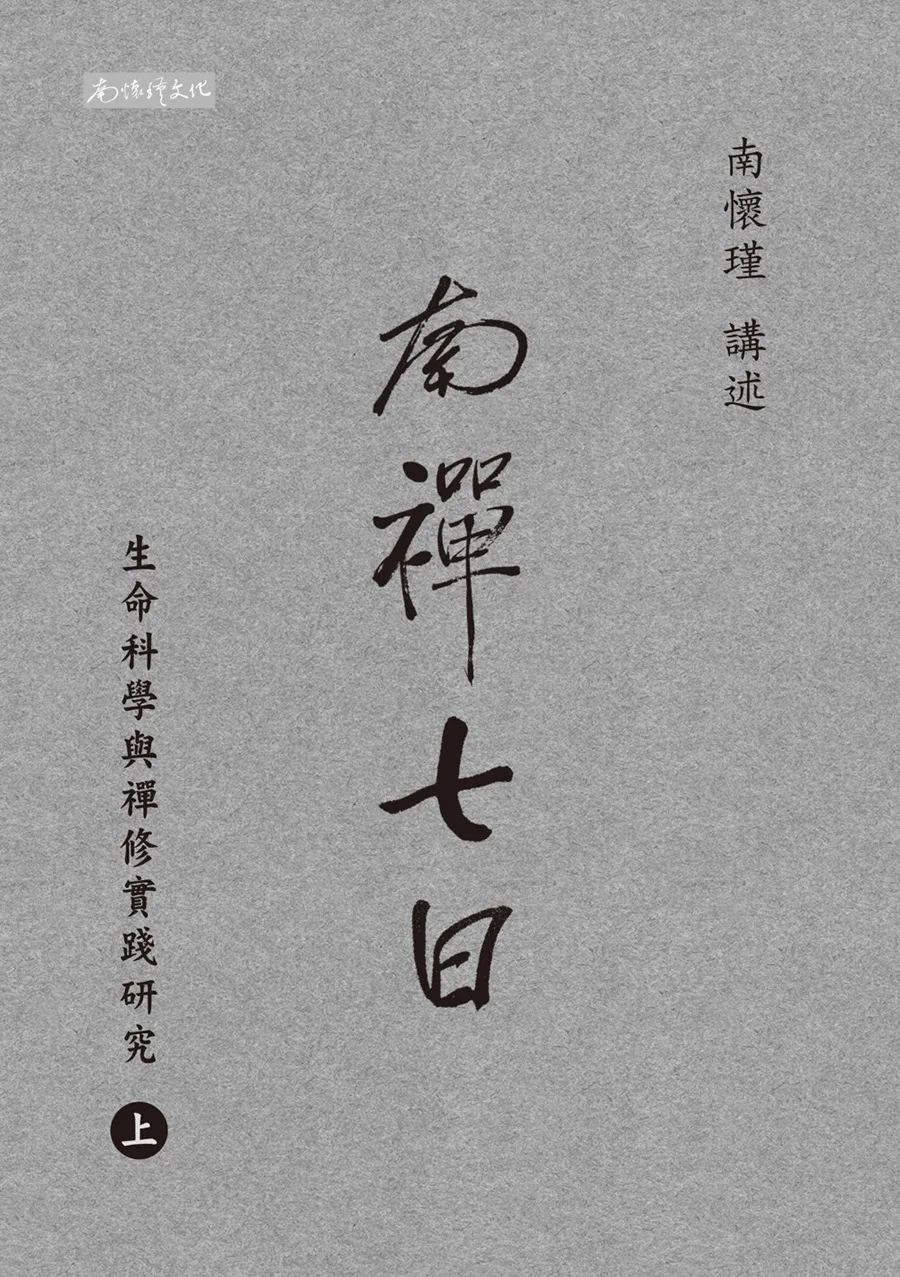 南懷瑾文化
南懷瑾 講述
南禪七日
生命科學與禪修實踐研究
上